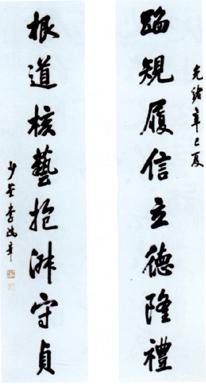 光緒辛巳夏
蹈規履信立德隆禮
根道核藝抱淑守貞
少荃李鴻章